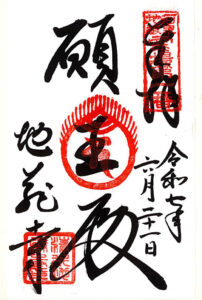 奉拝
令和七年
六月二十一日
願王殿
地蔵寺